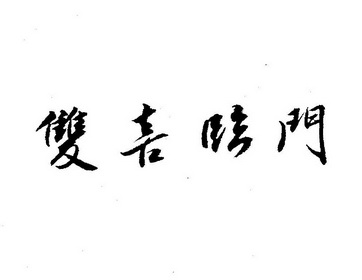 雙喜臨門